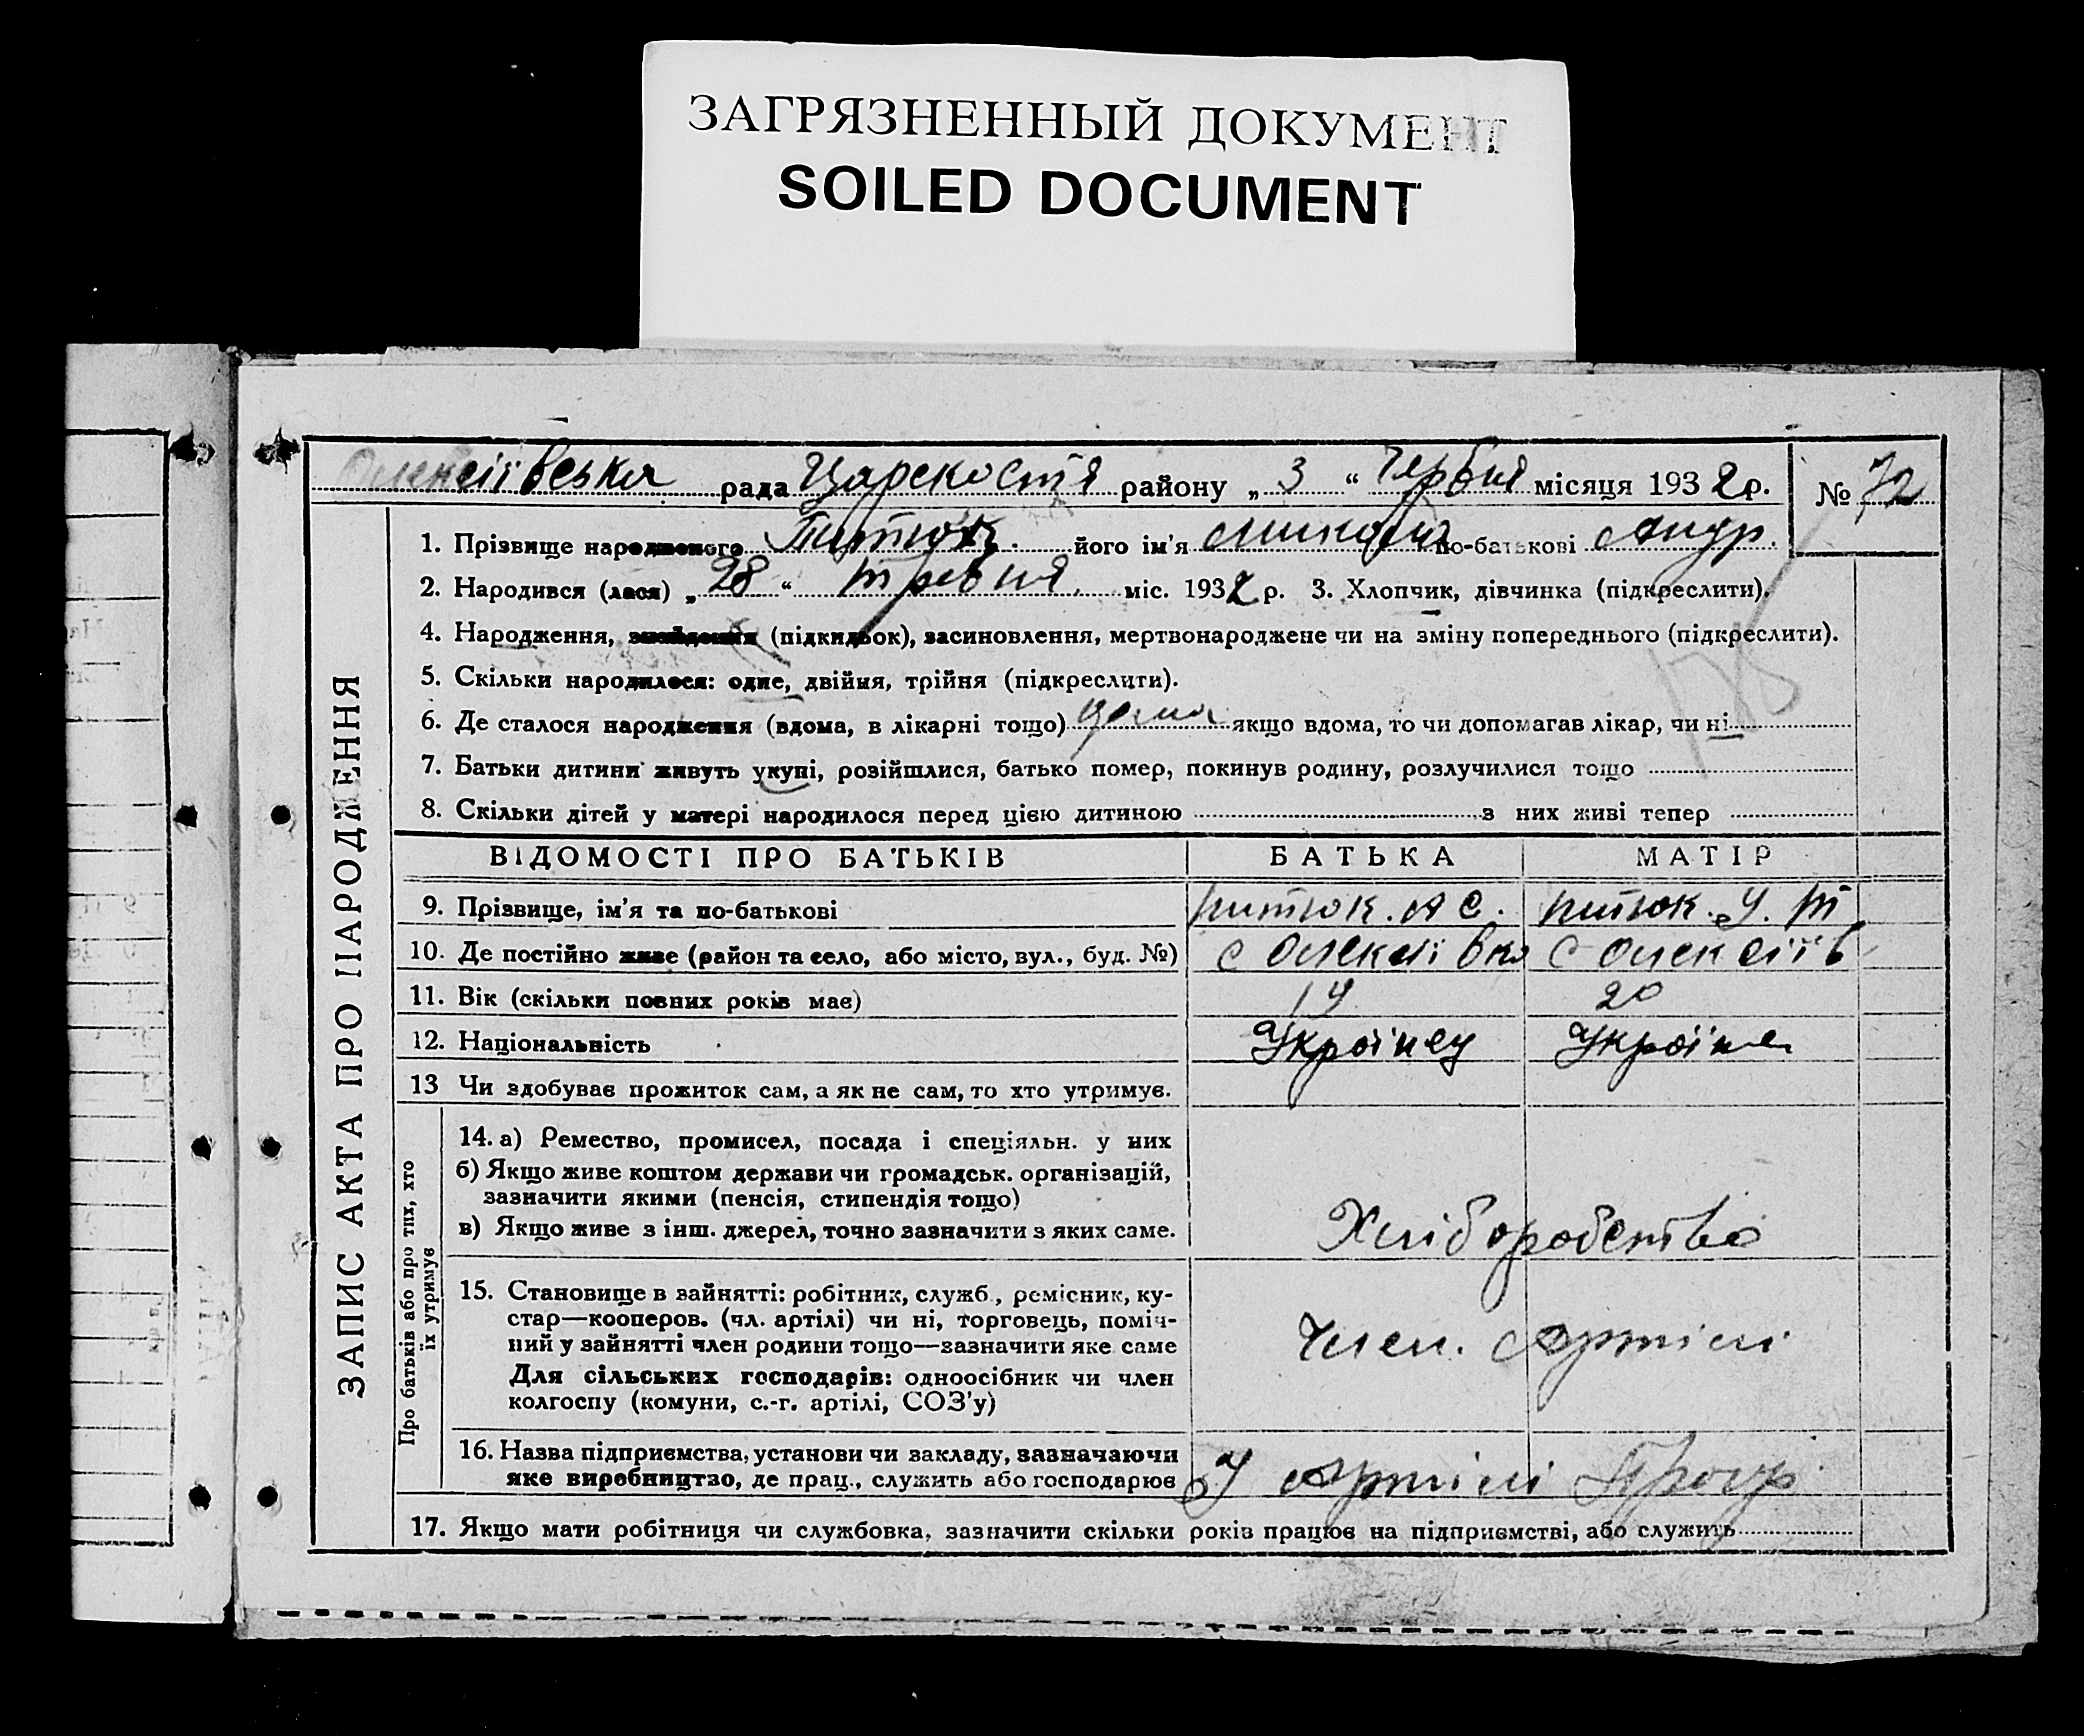 ЗАГРЯЗНЕННЫЙ ДОКУМЕНТ
SOILED DOCUMENT
Олексіївська рада Царекостя району „ 3 “ Червня місяця 1932 р. № 72
ЗАПИС АКТА ПРО НАРОДЖЕННЯ
1. Прізвище народженого Питюк його ім'я Микола по-батькові Андр.
2. Народився (лася) „ 28 “ травня міс. 1932 р. 3. Хлопчик, дівчинка (підкреслити).
4. Народження, знайдення (підкидьок), засиновлення, мертвонароджене чи на зміну попереднього (підкреслити).
5. Скільки народилося: одне, двійня, трійня (підкреслити).
6. Де сталося народження (вдома, в лікарні тощо) дома якщо вдома, то чи допомагав лікар, чи ні
7. Батьки дитини живуть укупі, розійшлися, батько помер, покинув родину, розлучилися тощо
8. Скільки дітей у матері народилося перед цією дитиною з них живі тепер
178
ВІДОМОСТІ ПРО БАТЬКІВ БАТЬКА МАТІР
9. Прізвище, ім'я та по-батькові питюк. А С. питюк. У. Т
10. Де постійно живе (район та село, або місто, вул., буд. №) с Олексіївка с Олексіїв
11. Вік (скільки повних років має) 19 20
12. Національність Українец Україн
13 Чи здобуває прожиток сам, а як не сам, то хто утримує.
Про батьків або про тих, хто
їх утримує
14. а) Ремество, промисел, посада і спеціяльн. у них
б) Якщо живе коштом держави чи громадськ. організацій,
зазначити якими (пенсія, стипендія тощо)
в) Якщо живе з інш. джерел, точно зазначити з яких саме.
Хліборобство
15. Становище в зайнятті: робітник, служб., ремісник, ку-
стар—кооперов. (чл. артілі) чи ні, торговець, поміч-
ний у зайнятті член родини тощо—зазначити яке саме
Для сільських господарів: одноосібник чи член
колгоспу (комуни, с.-г. артілі, СОЗ'у)
Член. Артілі
16. Назва підприємства, установи чи закладу, зазначаючи
яке виробництво, де прац., служить або господарює
У Артілі
17. Якщо мати робітниця чи службовка, зазначити скільки років працює на підприємстві, або служить